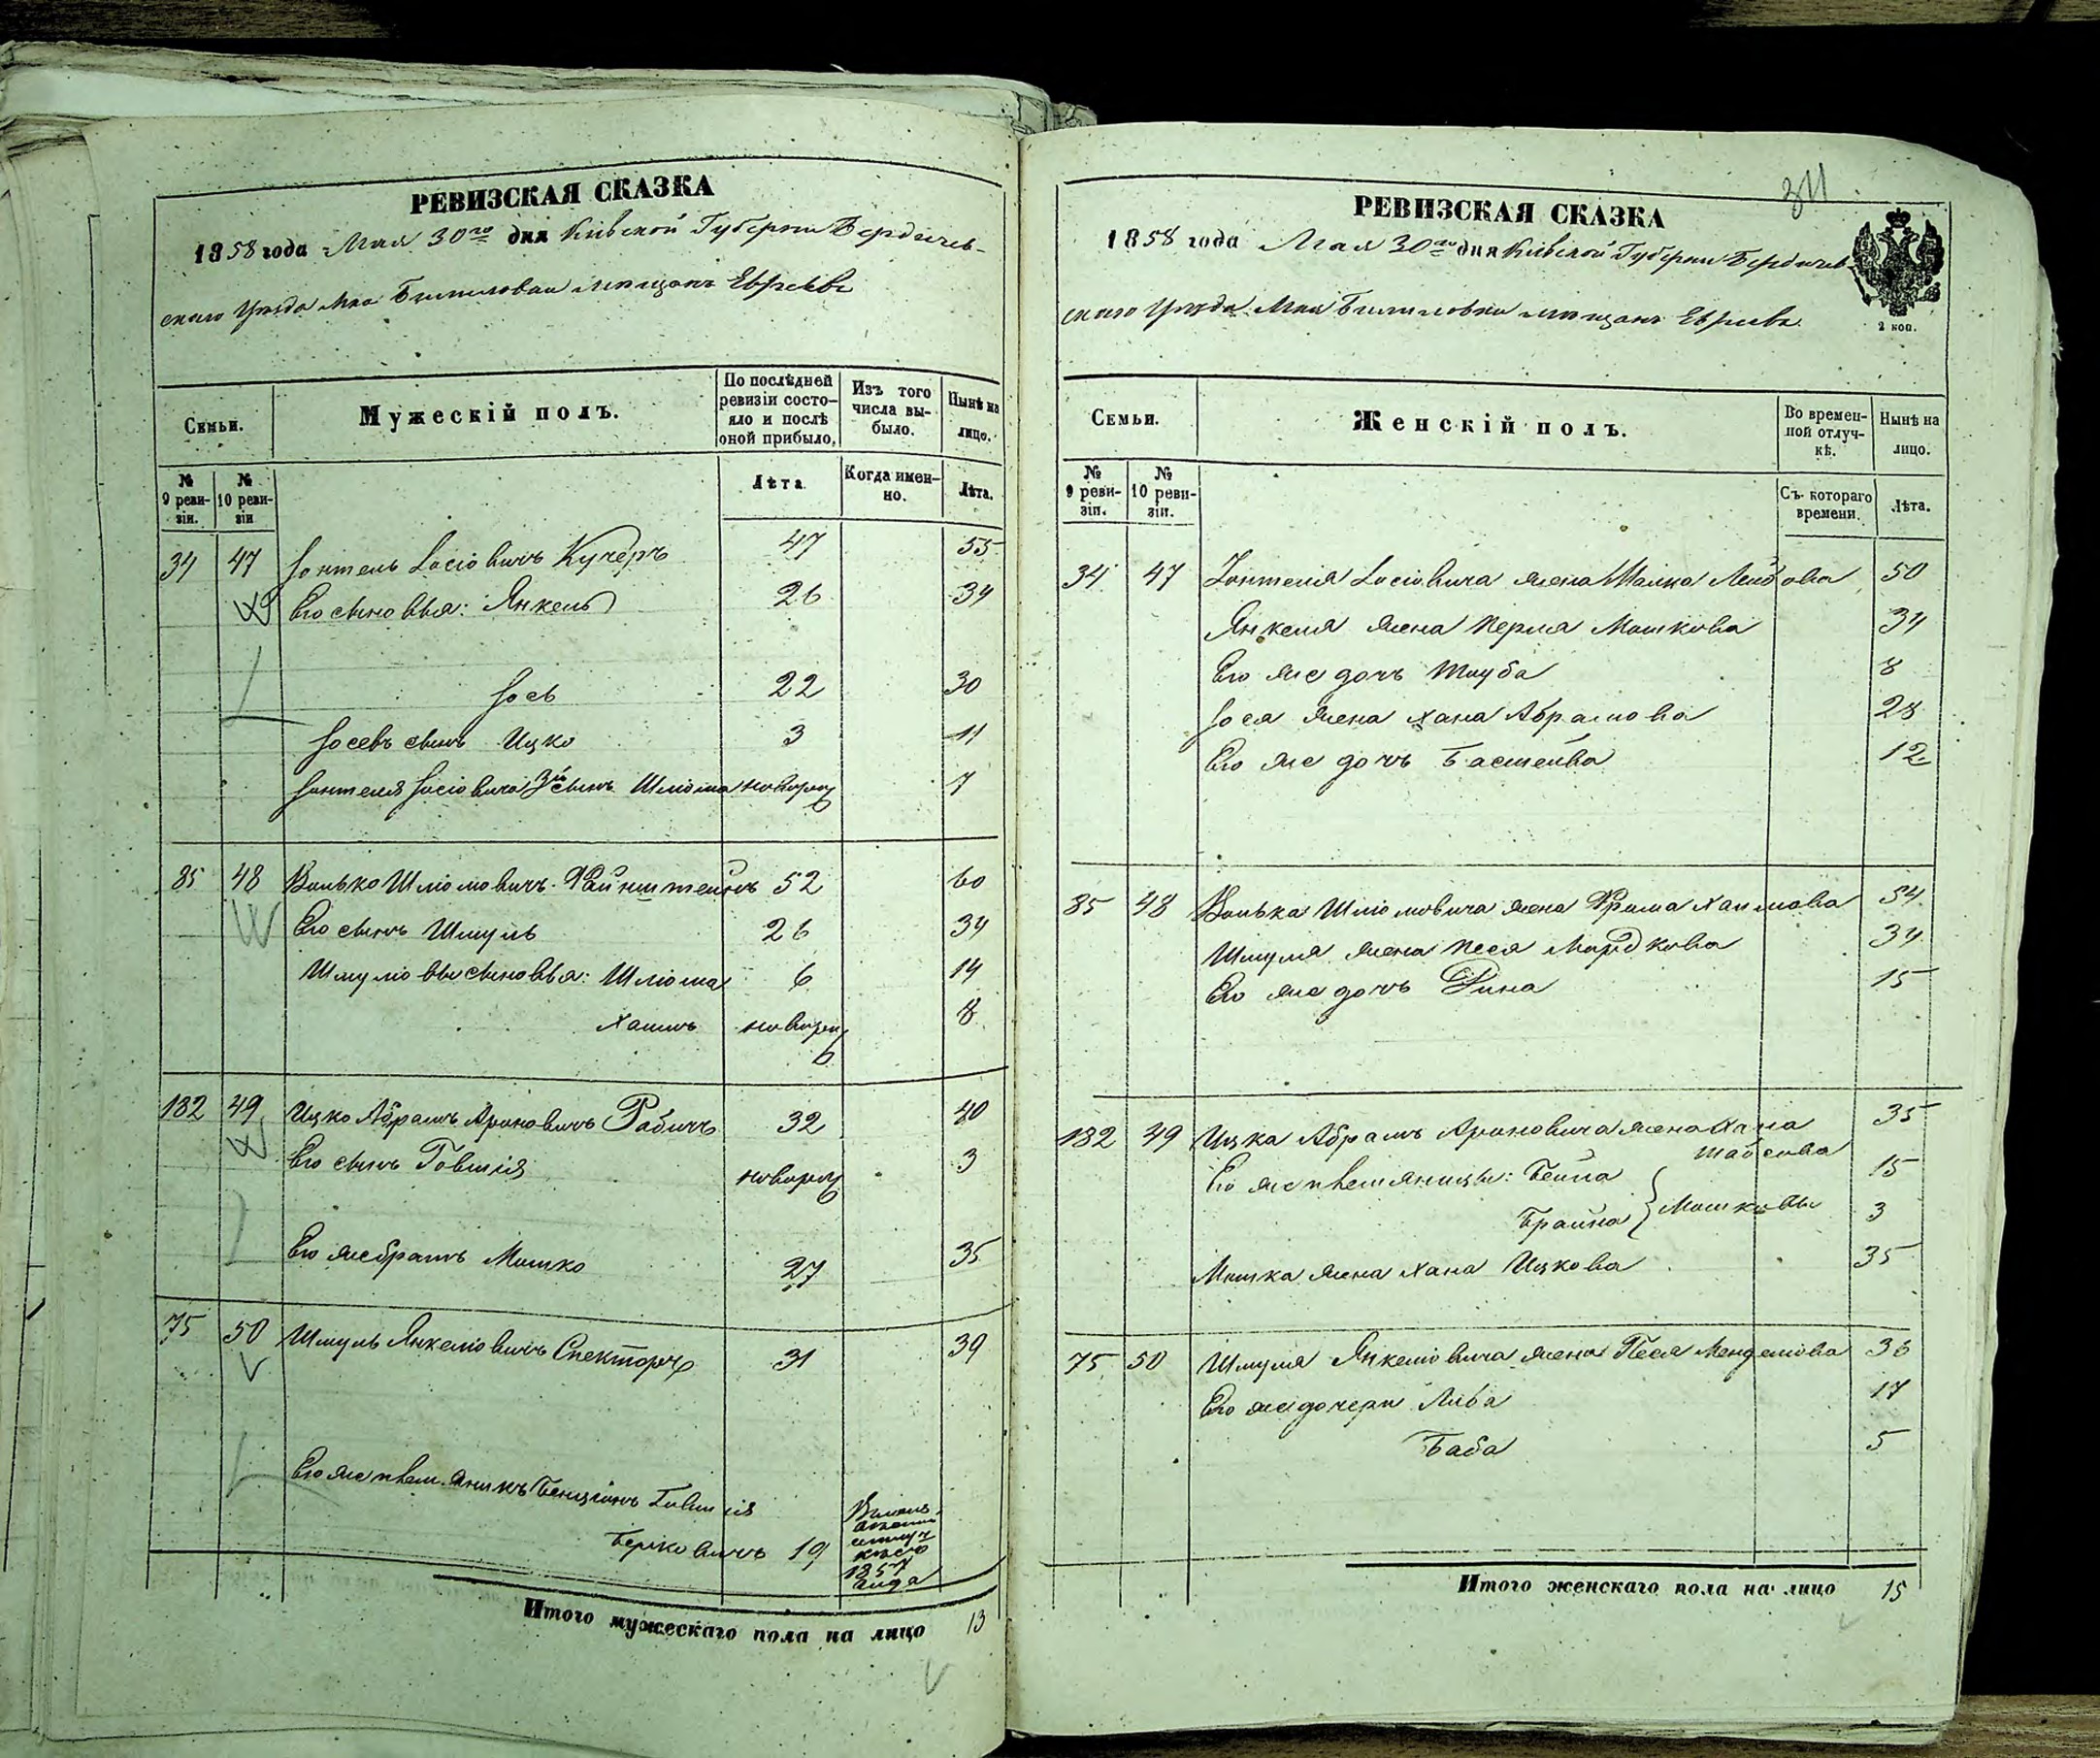 РЕВИЗСКАЯ СКАЗКА
1858 года Мая 30го дня Кіевской Губерніи Бердичев-
скаго Уѣзда Мка Билиловки мѣщанъ Евреевъ
Семьи.
Мужескій полъ.
По послѣдней ревизіи состо-яло и послѣ оной прибыло.
Изъ того числа вы-было.
Нынѣ на лицо.
№ 9 реви-зіи.
№ 10 реви-зіи
Лѣта
Когда имен-но.
Лѣта.
34 47 Іонтель Іосіовичъ Кучеръ 47 55
Его сыновья: Янкель 26 34
Іось 22 30
Іосевъ сынъ Ицко 3 11
Іонтеля Іосіовича 3й сынъ Шліома новорож 7
85 48 Волько Шліомовичъ Файнштейнъ 52 60
Его сынъ Шмуль 26 34
Шмуліовы сыновья: Шліома 6 14
Хаимъ новорож 8
182 49 Ицко Абрамъ Ароновичъ Рабичъ 32 40
Его сынъ Говшія новорож 3
Его же братъ Мошко 27 35
75 50 Шмуль Янкеліовичъ Спекторъ 31 39
Его же племяникъ Бенціонъ Говшія
Берковичъ 19
1857
года
Итого мужескаго пола на лицо 13
311
РЕВИЗСКАЯ СКАЗКА
1858 года Мая 30го дня Кіевской Губерніи Бердичев-
скаго Уѣзда Мка Билиловки мѣщанъ Евреевъ
2 коп.
Семьи.
Женскій полъ.
Во времен-ной отлуч-кѣ.
Нынѣ на лицо.
№ 9 реви-зіи.
№ 10 реви-зіи.
Съ котораго времени.
Лѣта.
34 47 Іонтеля Іосіовича жена Малка Лейбова 50
Янкеля жена Перля Мошкова 34
Его же дочь Тауба 8
Іося жена Хана Абрамова 28
Его же дочь Басшева 12
85 48 Волька Шліомовича жена Фрима Хаимова 54
Шмуля жена Песя Мордкова 34
Его же дочь Рина 15
182 49 Ицка Абрамъ Ароновича жена Хана 35
Шабсова
Его же племяницы: Бейла 15
Брайна } Мошковы 3
Мошка жена Хана Ицкова 35
75 50 Шмуля Янкеліовича жена Песя Менделіова 36
Его же дочери Либа 17
Баба 5
Итого женскаго пола на лицо 15